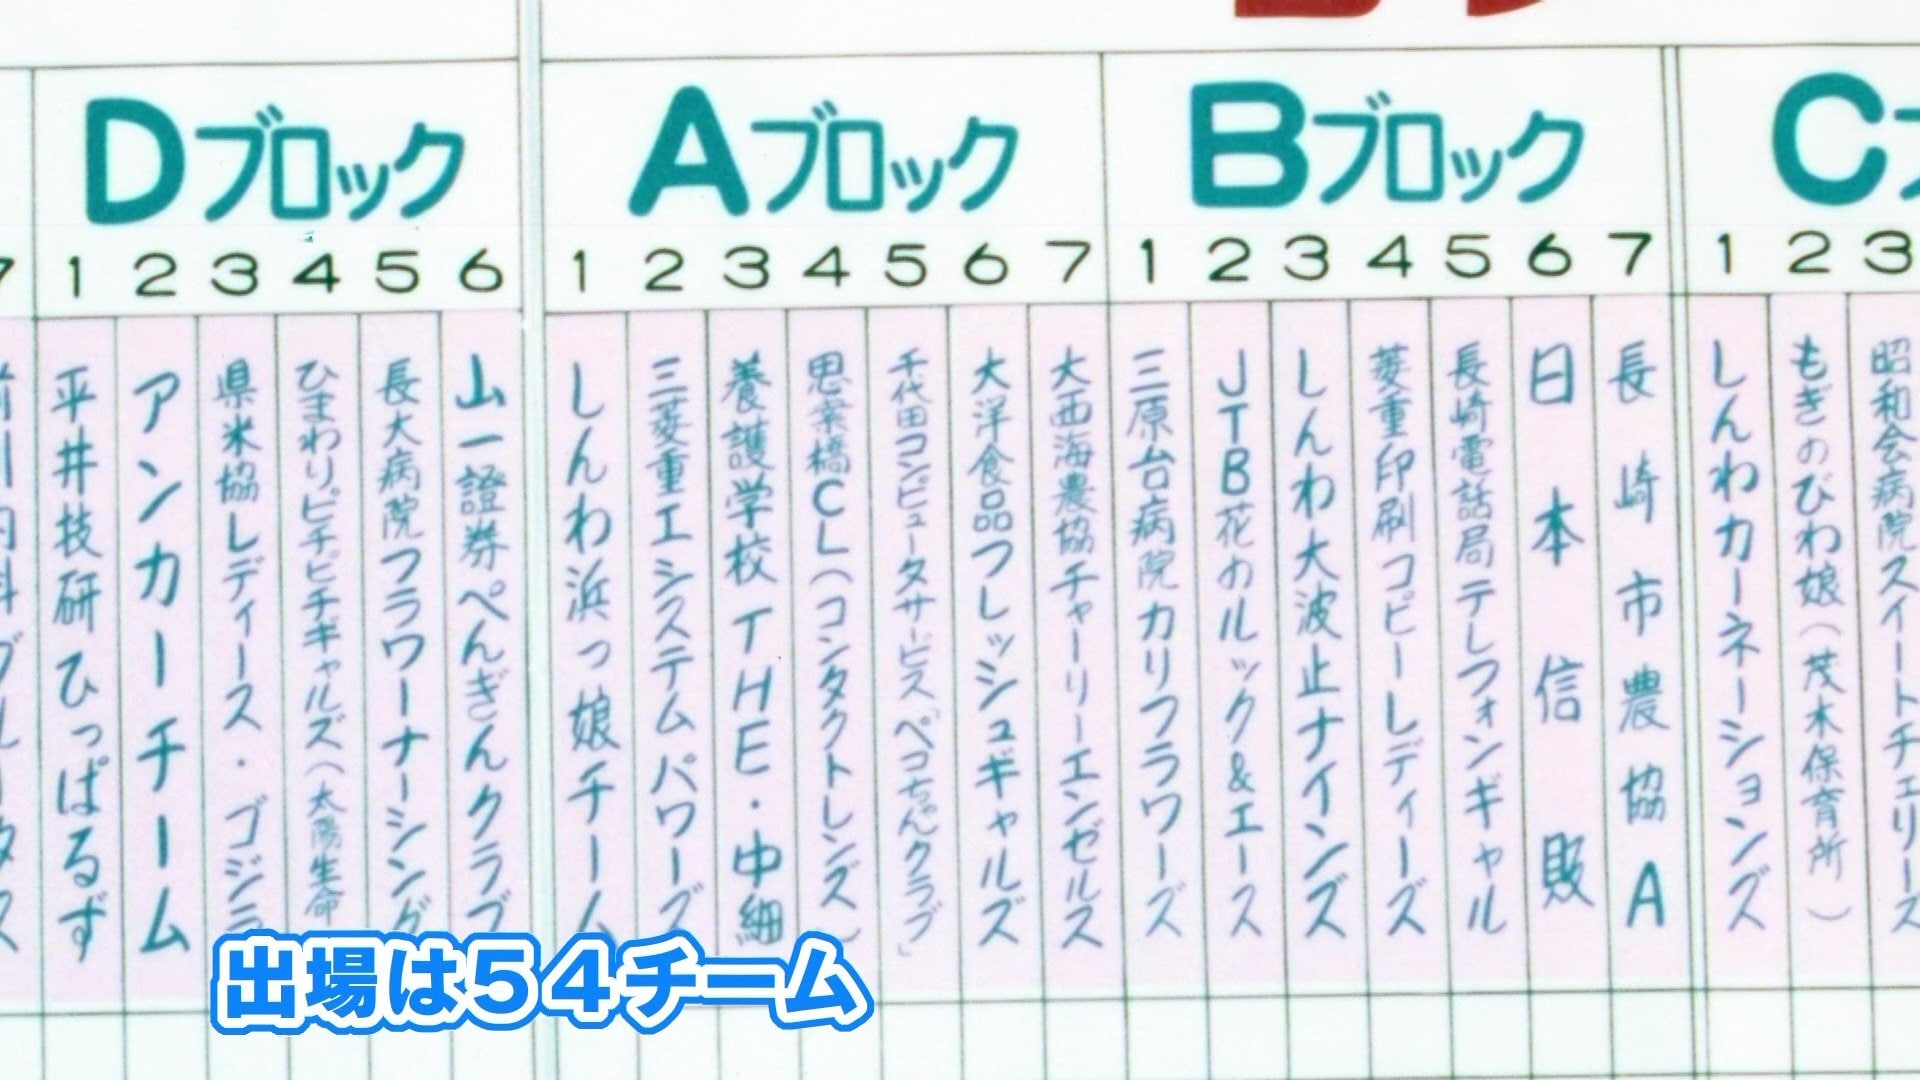 Dブロック
1 2 3 4 5 6
平井技研ひっぱるず
アンカーチーム
県米協レディース・ゴジラ
ひまわりピチピチギャルズ(太陽生命
長大病院フラワーナーシング
山一證券ぺんぎんクラブ
Aブロック
1 2 3 4 5 6 7
しんわ浜っ娘チーム
三菱重工システムパワーズ
養護学校THE・中細
思案橋CL(コンタクトレンズ)
千代田コンピュータサービス「ペコちゃんクラブ」
大洋食品フレッシュギャルズ
大西海農協チャーリーエンゼルス
Bブロック
1 2 3 4 5 6 7
三原台病院カリフラワーズ
JTB花のルック&エース
しんわ大波止ナインズ
菱重印刷コピーレディーズ
長崎電話局テレフォンギャル
日本信販
長崎市農協A
C
1 2 3
しんわカーネーションズ
もぎのびわ娘(茂木保育所)
昭和会病院スイートチェリーズ
出場は54チーム